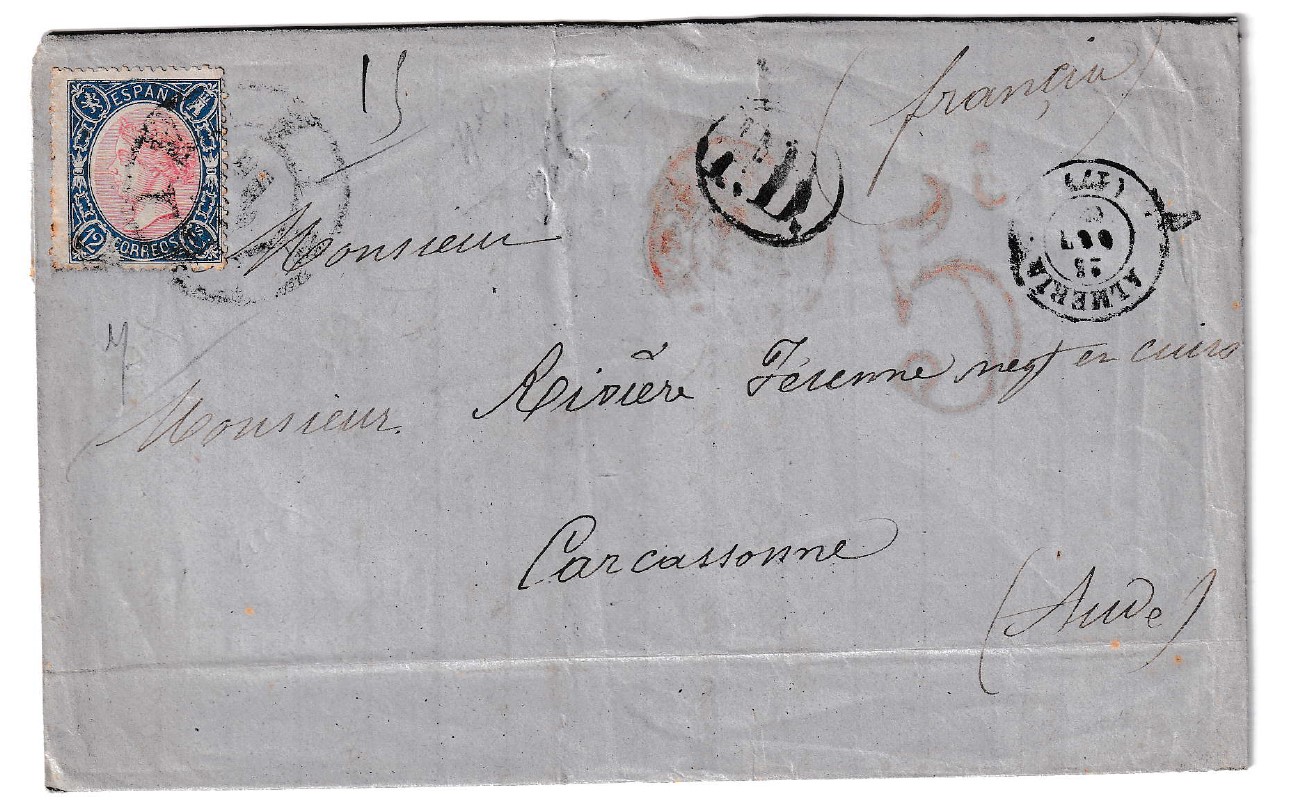 ESPAÑA
12 CORREOS Cs
15
(françia)
5
ALMERIA
(17)
A
Monsieur
Monsieur Rivière Férenne negt en cuirs
Carcassonne
(Aude)